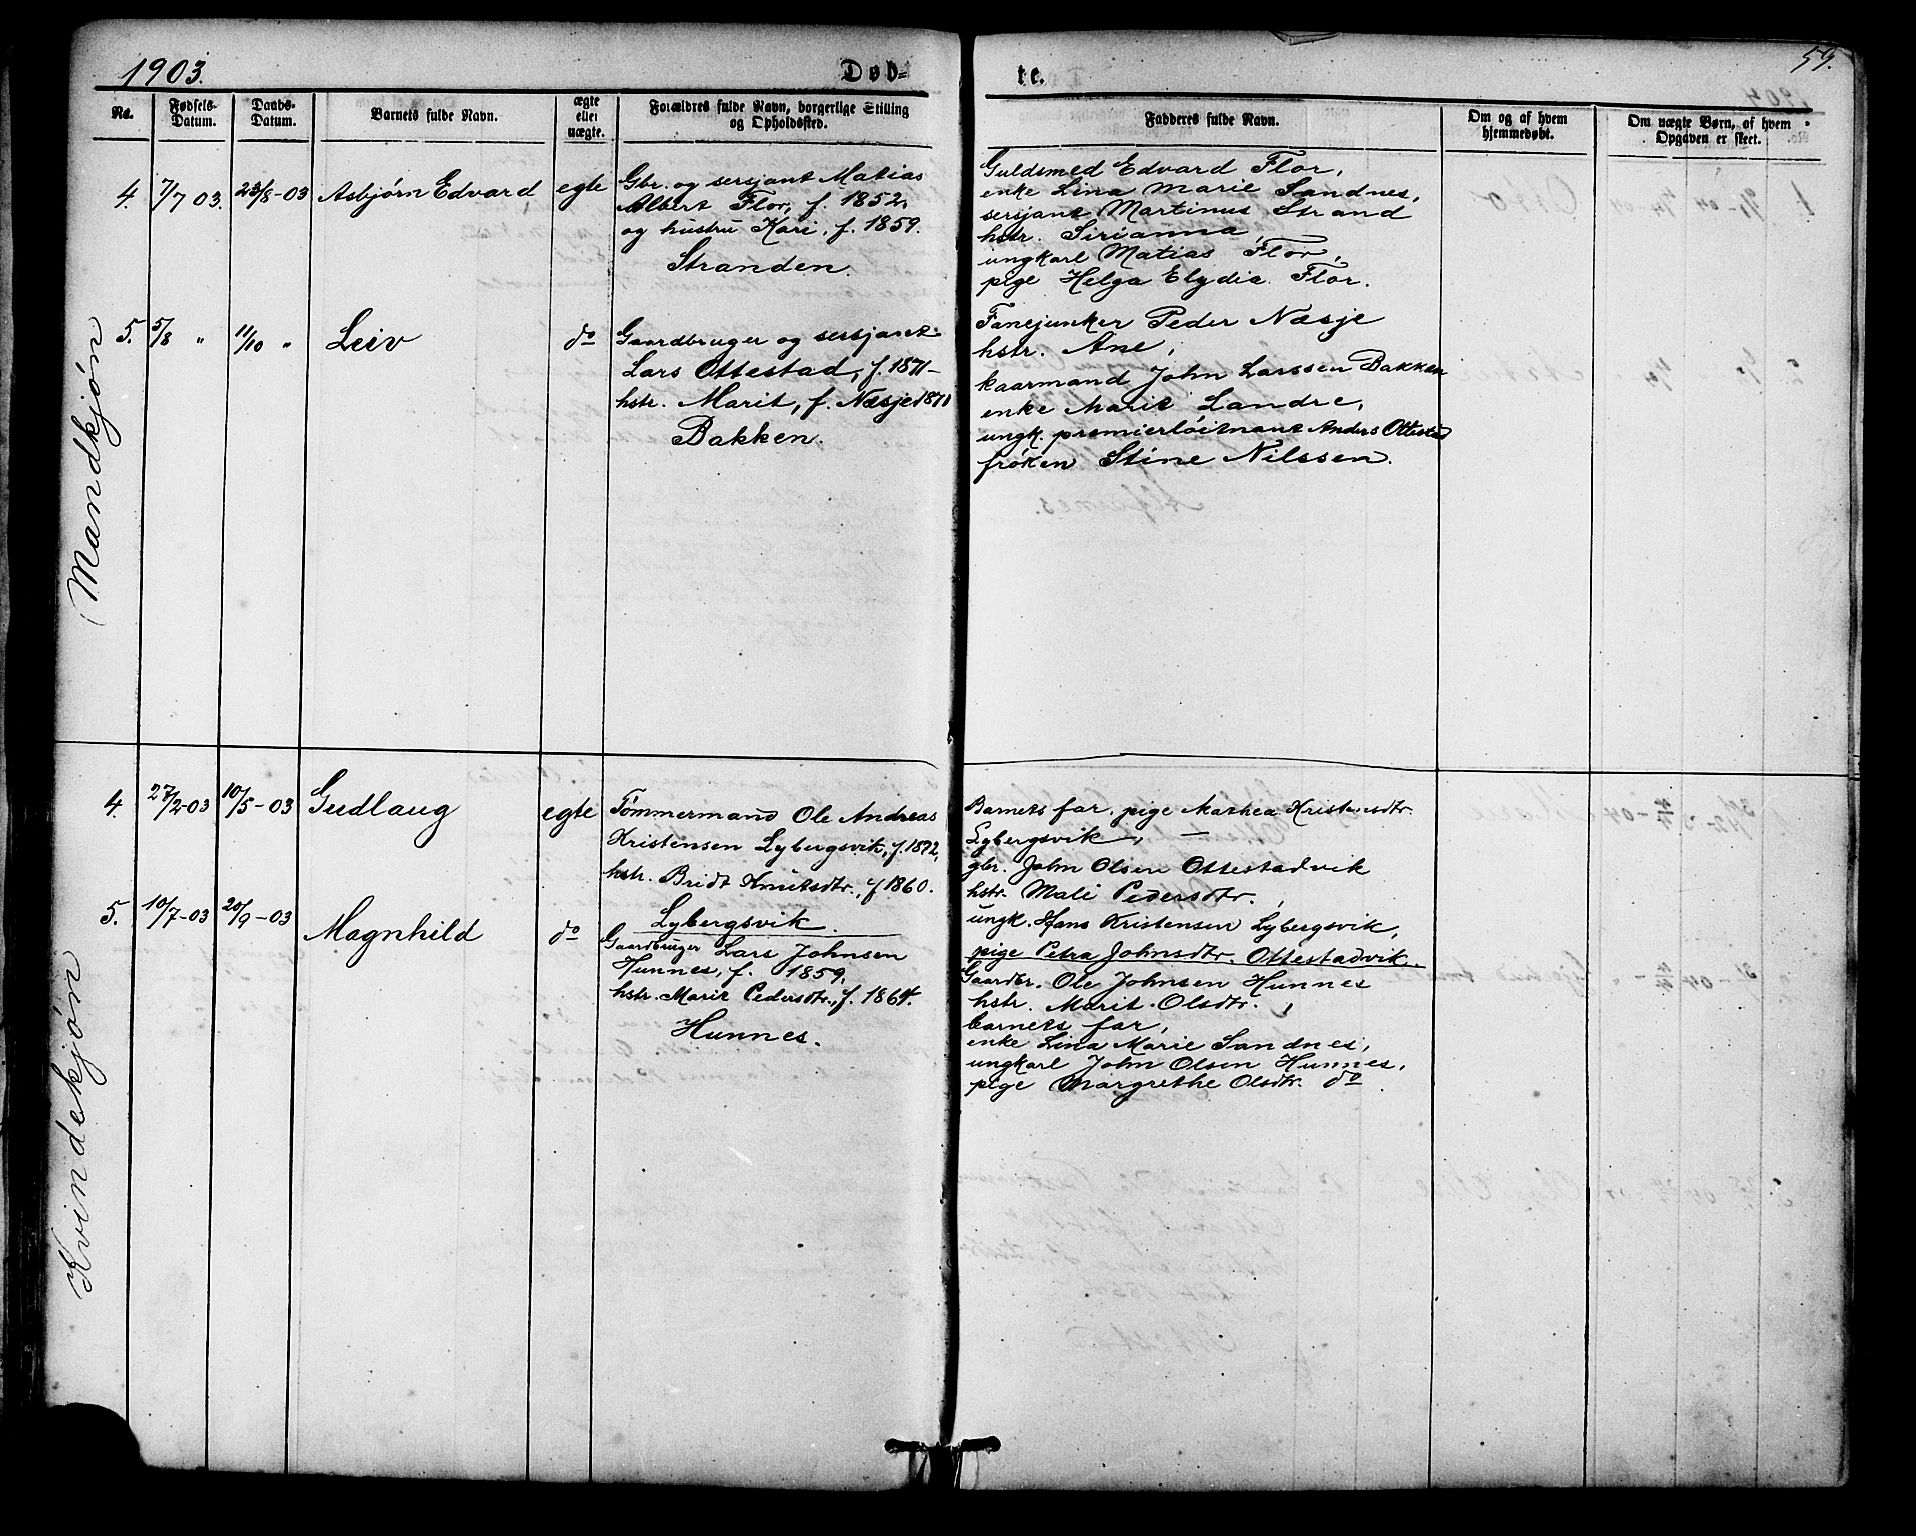 1903.
Døb-
te.
59.
No.
Fødsels-
Datum.
Daabs-
Datum.
Barnets fulde Navn.
ægte
eller
uægte.
Forældres fulde Navn, borgerlige Stilling
og Opholdssted.
Fadderes fulde Navn.
Om og af hvem
hjemmedøbt.
Om uægte Børn, af hvem
Opgaven er skeet.
Mandkjøn
4. 7/7 03. 23/8-03 Asbjørn Edvard egte
Gbr. og sersjant Matias
Albert Flor, f. 1852,
og hustru Kari, f. 1859.
Stranden.
Guldsmed Edvard Flor,
enke Lina Marie Sandnes,
sersjant Martinus Strand
hstr. Sirianna,
ungkarl Matias Flor,
pige Helga Elydia Flor.
5. 5/8 " 11/10 " Leiv do
Gaardbruger og sersjant
Lars Ottestad, f. 1871-
hstr. Marit, f. Næsje 1871
Bakken.
Fanejunker Peder Næsje
hstr. Ane,
kaarmand John Larssen Bakken
enke Marie Landre,
ungk. premierløitnant Anders Ottestad
frøken Stine Nilssen.
Kvindekjøn
4. 27/2-03 10/5-03 Gudlaug egte
Tømmermand Ole Andreas
Kristensen Lybergsvik, f. 1872,
hstr. Bridt Knutsdtr., f 1860.
Lybergsvik.
Barnets far, pige Mathea Kristensdtr.
Lybergsvik,
gbr. John Olsen Ottestadvik
hstr. Mali Pedersdtr.,
ungk. Hans Kristensen Lybergsvik,
pige Petra Johnsdtr. Ottestadvik.
5. 10/7-03 20/9-03 Magnhild do
Gaardbruger Lars Johnsen
Hunnes, f. 1859,
hstr. Marie Pedersdtr., f. 1864.
Hunnes.
Gaardbr. Ole Johnsen Hunnes
hstr. Marit Olsdtr.,
barnets far,
enke Lina Marie Sandnes,
ungkarl John Olsen Hunnes,
pige Margrethe Olsdtr. do